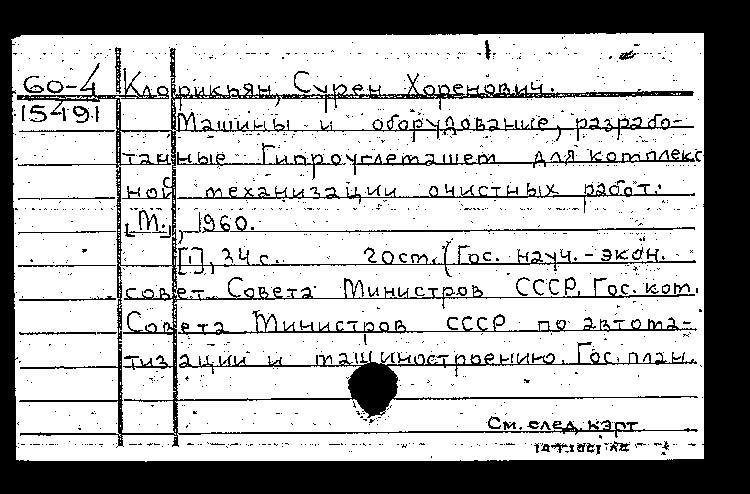 60-4 Клорикьян, Сурен Хоренович.
15491
Машины и оборудование, разрабо-
танные Гипроуглемашем для комплекс
ной механизации очистных работ.
[М.], 1960.
[1], 34 с. 20 ст. (Гос. науч.-экон.
совет Совета Министров СССР. Гос. ком.
Совета Министров СССР по автома-
тизации и машиностроению. Гос. план.
См. след. карт.